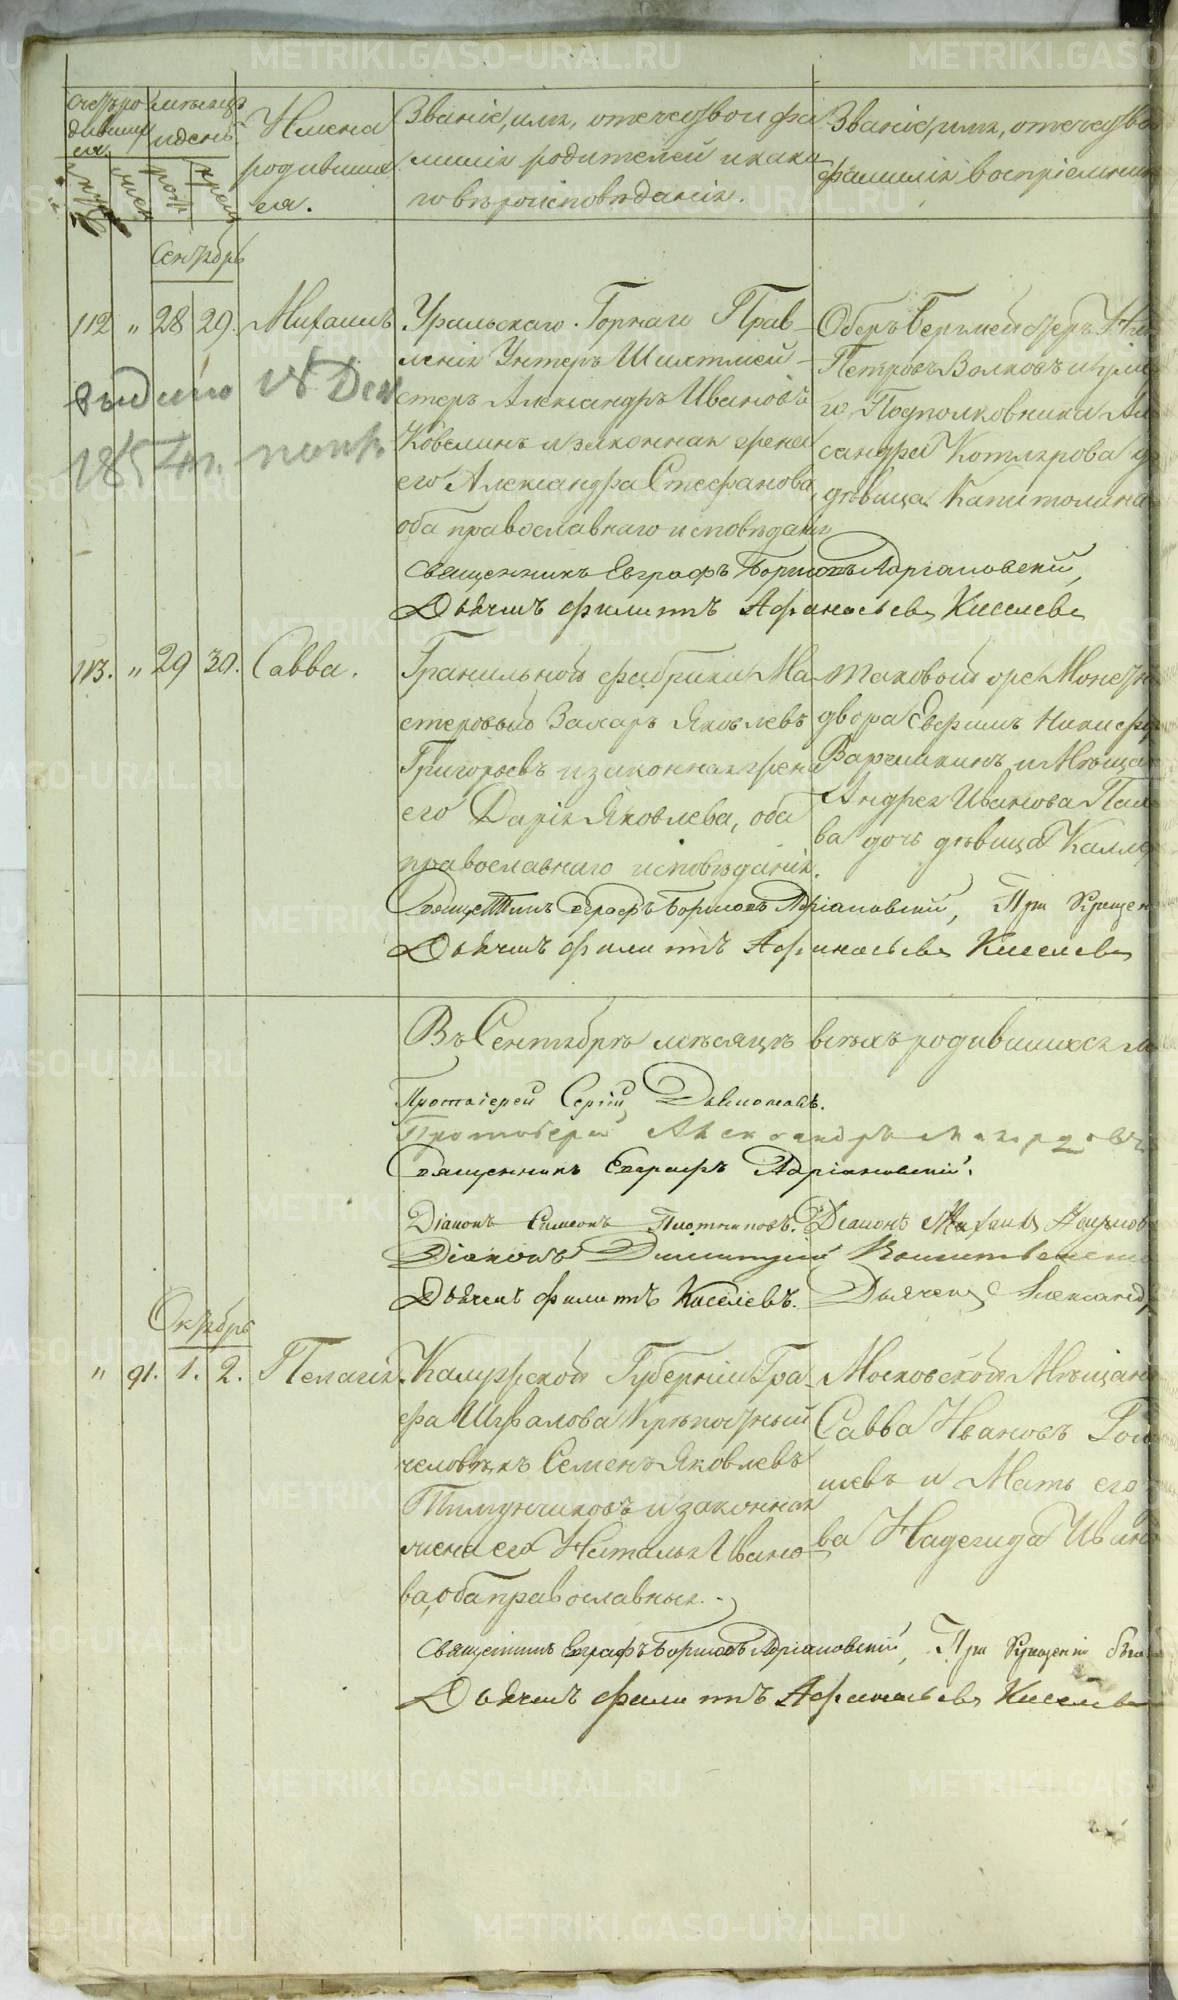 Счетъ ро
дивших
ся.
Мѣсяцъ
и день.
рож
крещ
Имена
родивших
ся.
Званіе, имя, отечество и фа
милія родителей и како
го вѣроисповѣданія.
Званіе, имя, отечество
фамилія воспріемник
Сентябрь
112 „ 28 29. Михаилъ
Уральскаго Горнаго Прав-
ленія Унтеръ Шихтмей-
стеръ Александръ Ивановъ
Ковелинъ и законная жена
его Александра Стефанова,
оба православнаго исповѣданія
Оберъ Бергмейстеръ
Петровъ Волковъ и
Подполковника Ал
сандра Котлярова
дѣвица Капитолина
выдано 18 Дек
Священникъ Евграфъ Борисовъ Адріановскій,
Дьячекъ Филиппъ Афанасьевъ Киселевъ
113. „ 29 30. Савва.
Гранильной фабрики Ма-
стеровой Захаръ Яковлевъ
Григорьевъ и законная жена
его Дарія Яковлева, оба
православнаго исповѣданія.
таковой же Монетн
двора Евфимъ Никифор
Варчикинъ и Мѣщан
Андрея Иванова Пал
ва дочь дѣвица
Священникъ Евграфъ Борисовъ Адріановскій, При Крещен
Дьячекъ Филиппъ Афанасьевъ Киселевъ
Въ Сентябрѣ мѣсяцѣ всѣхъ родившихся м
Протоіерей Сергій
Протоіерей Александръ
Священникъ Евграфъ Адріановскій.
Діаконъ Симеонъ Плотниковъ. Діаконъ Михаилъ Наумов
Діаконъ Димитрій
Дьячекъ Филиппъ Киселевъ. Дьячекъ Александр
Октябрь
„ 91. 1. 2. Пелагія.
Калужской Губерніи Гра-
фа Шувалова Крѣпостный
человѣкъ Семенъ Яковлевъ
Тимунчиковъ и законная
жена его Наталья Ивано-
ва, оба православные.
Московской Мѣщан
Савва Ивановъ
шевъ и Мать его
ва Надежда Иван
Священникъ Евграфъ Борисовъ Адріановскій, При Крещеніи был
Дьячекъ Филиппъ Афанасьевъ Киселевъ
METRIKI.GASO-URAL.RU